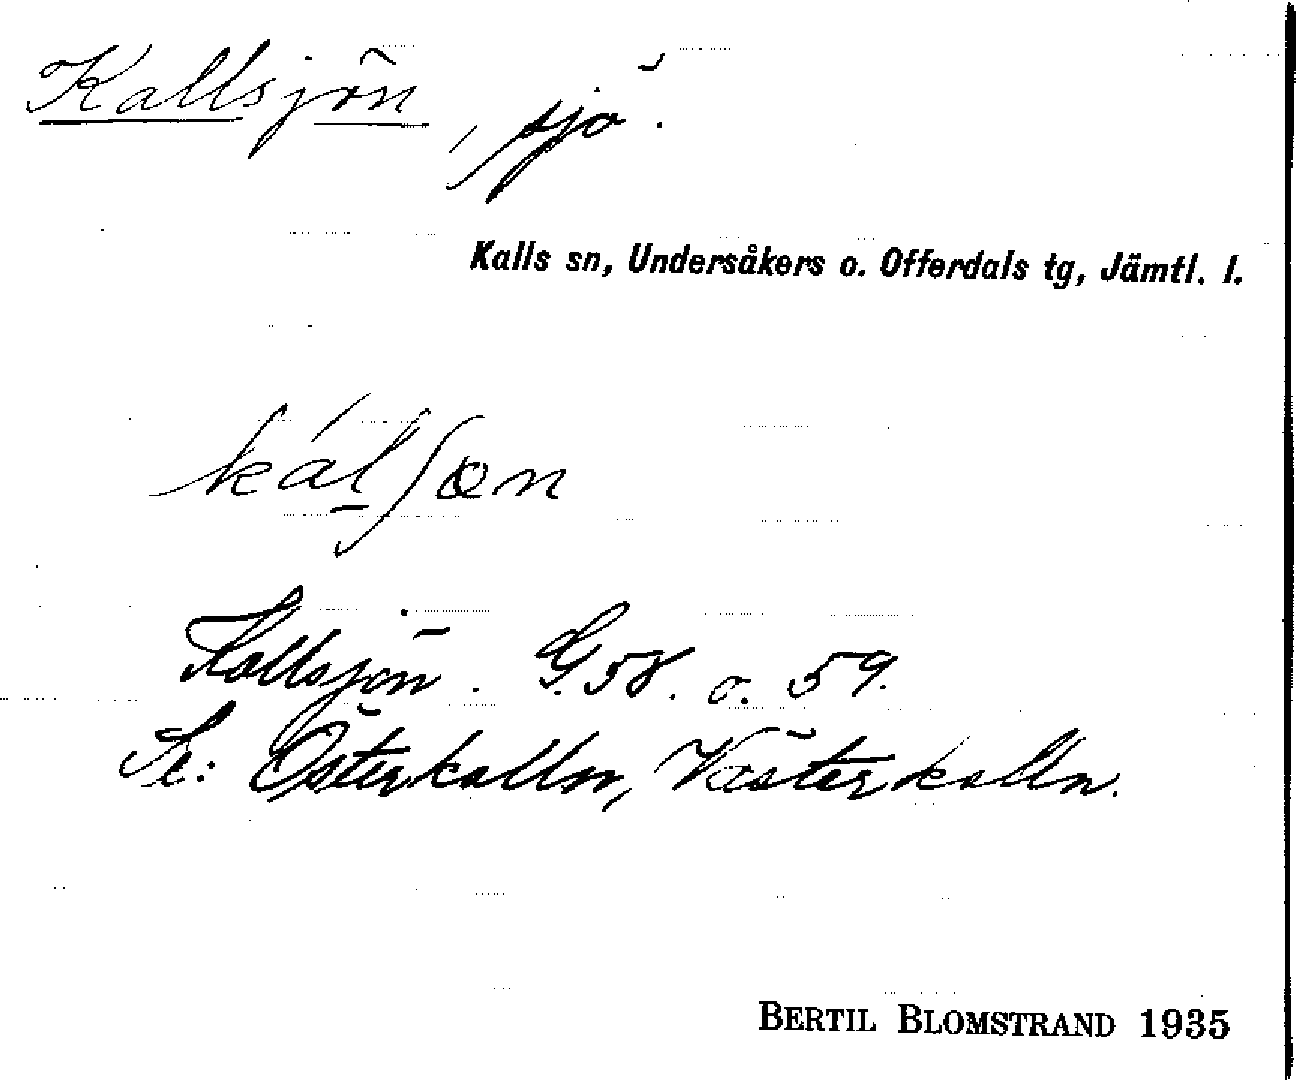 Kallsjön, sjö.
Kalls sn, Undersåkers o. Offerdals tg, Jämtl. l.
kálʃøn
Kallsjön. G. 58. o. 59.
Se: Österkalln, Västerkalln.
BERTIL BLOMSTRAND 1935